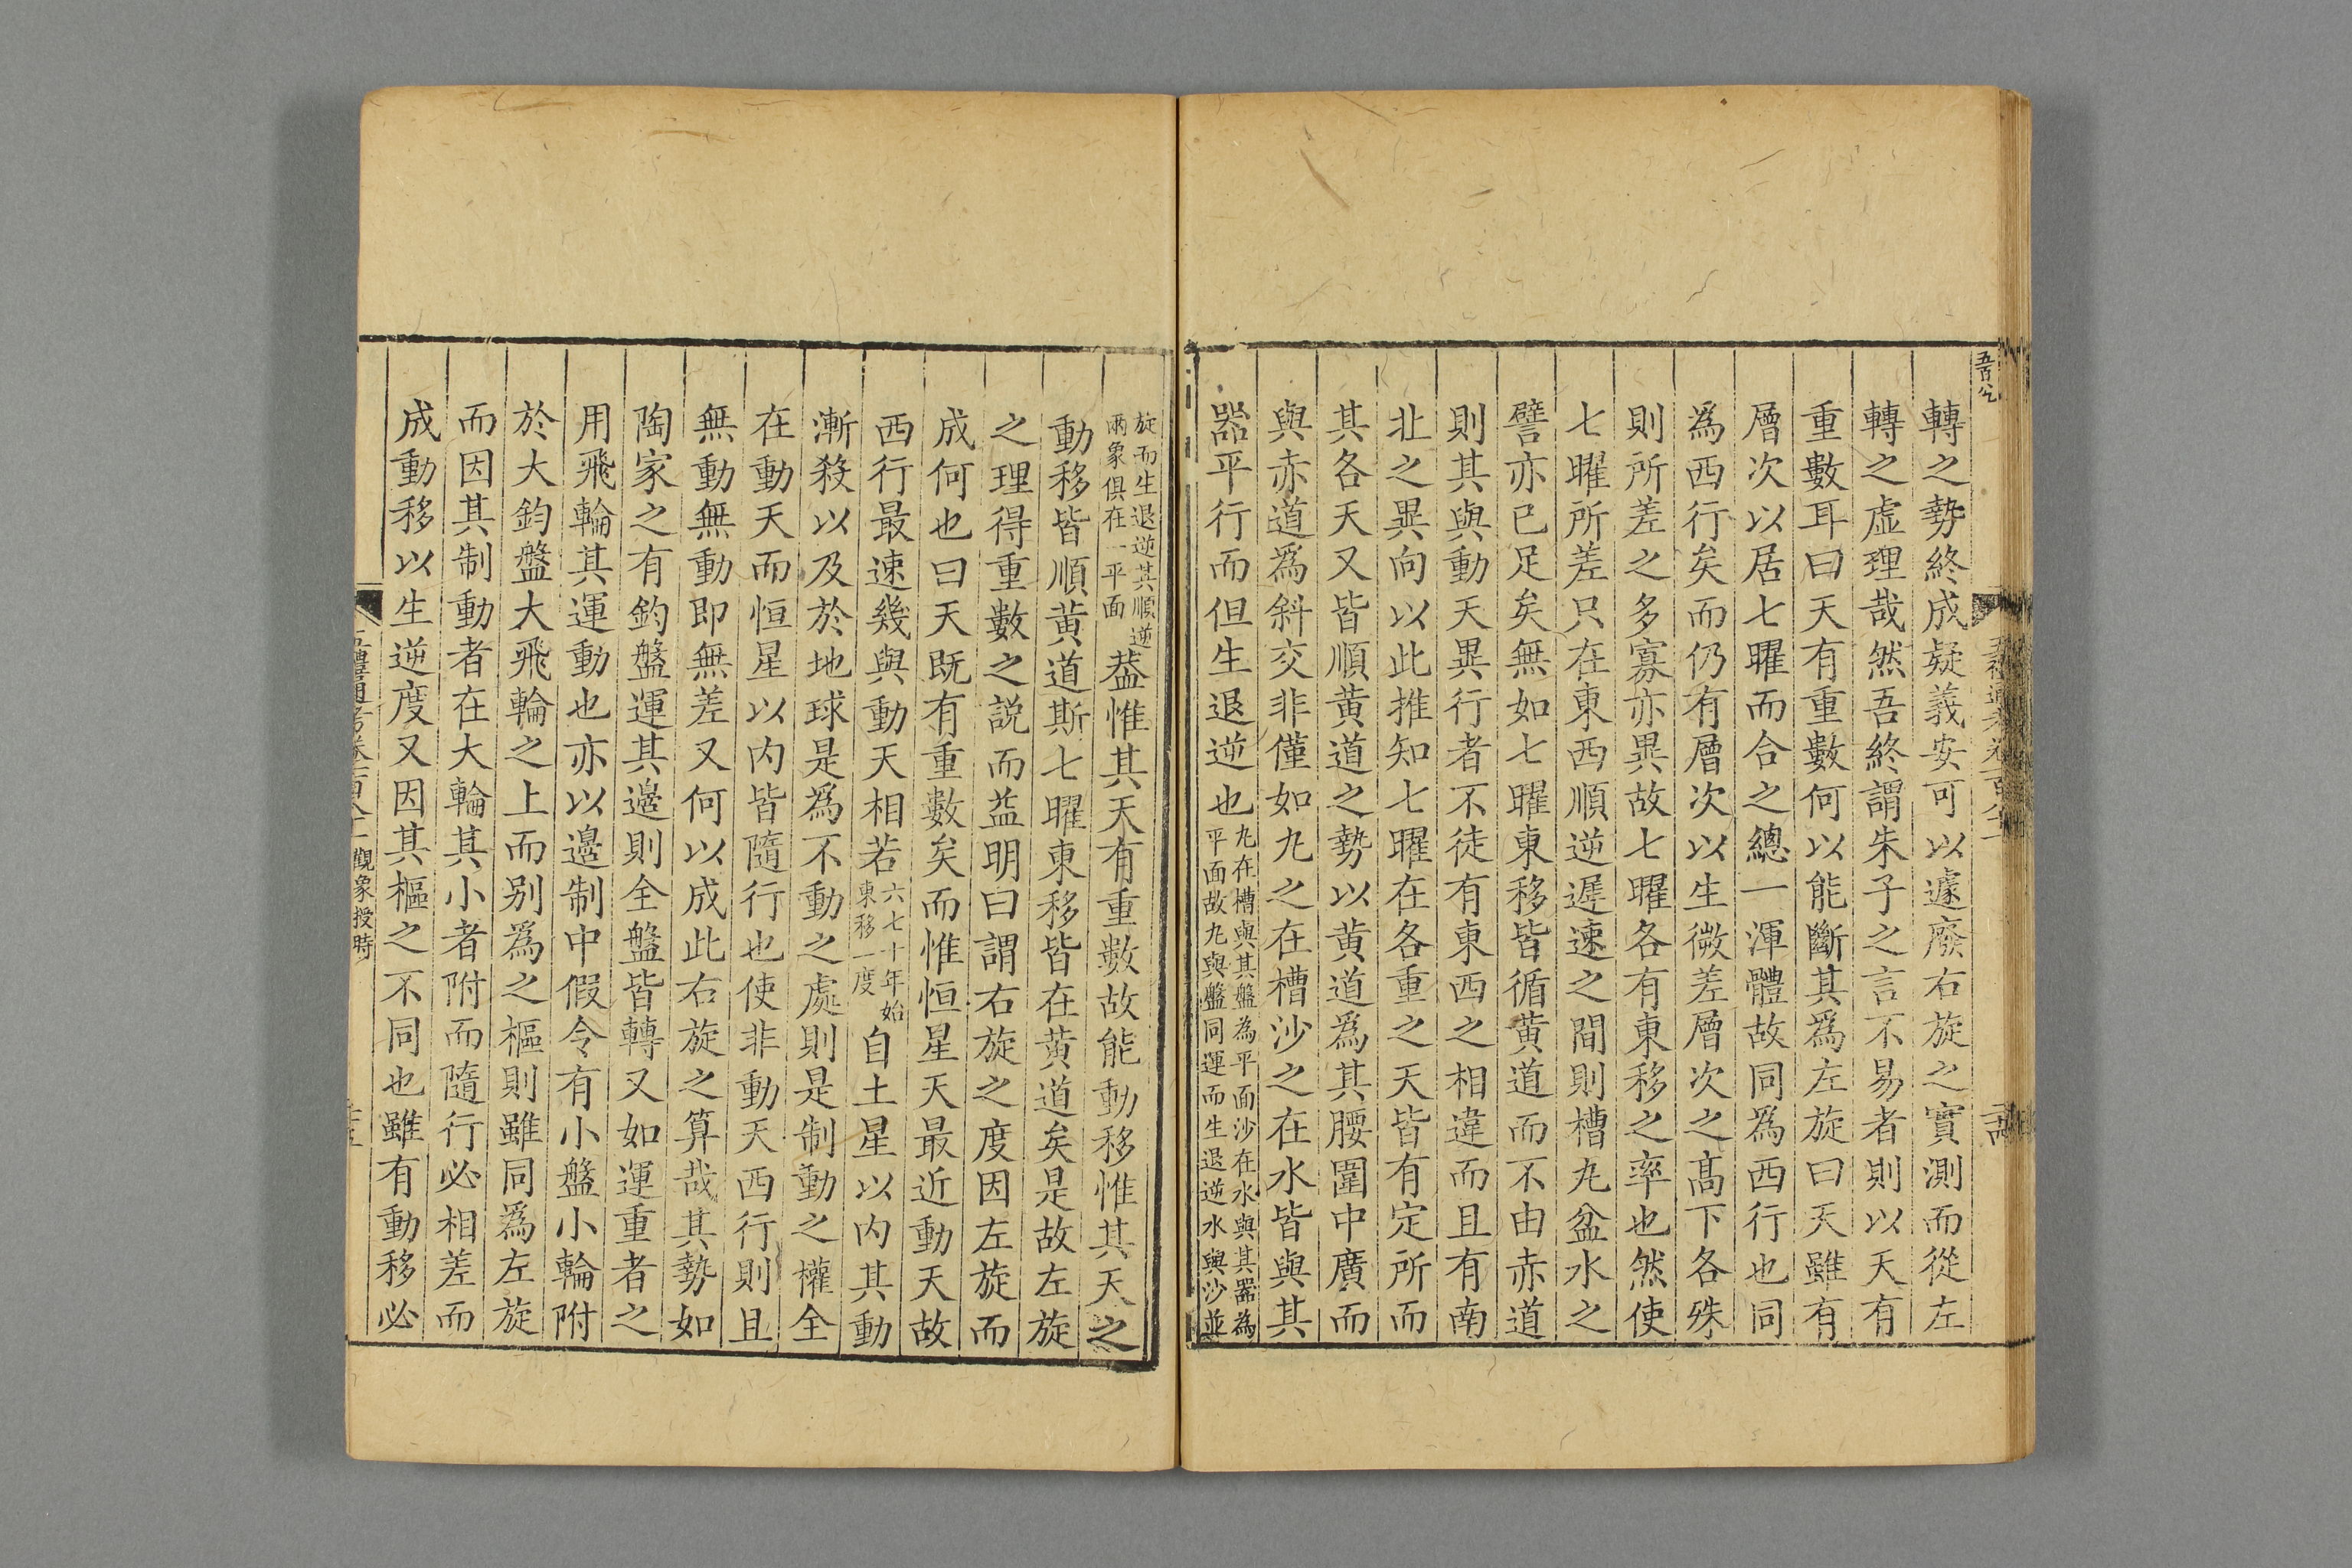 轉之勢終成疑義安可以遽廢右旋之實測而從左
轉之虛理哉然吾終謂朱子之言不易者則以天有
重數耳曰天有重數何以能斷其爲左旋曰天雖有
層次以居七曜而合之總一渾體故同爲西行也同
爲西行矣而仍有層次以生微差層次之高下各殊
則所差之多寡亦異故七曜各有東移之率也然使
七曜所差只在東西順逆遲速之間則槽丸盆水之
譬亦已足矣無如七曜東移皆循黄道而不由赤道
則其與動天異行者不徒有東西之相違而且有南
北之異向以此推知七曜在各重之天皆有定所而
其各天又皆順黄道之勢以黄道爲其腰圍中廣而
與赤道爲斜交非僅如丸之在槽沙之在水皆與其
器平行而但生退逆也
丸在槽與其盤為平面沙在水與其器為
平面故丸與盤同運而生退逆水與沙並
旋而生退逆其順逆
兩象俱在一平面
葢惟其天有重數故能動移惟其天之
動移皆順黄道斯七曜東移皆在黄道矣是故左旋
之理得重數之説而益明曰謂右旋之度因左旋而
成何也曰天既有重數矣而惟恒星天最近動天故
西行最速幾與動天相若
六七十年始
東移一度
自土星以内其動
漸殺以及於地球是爲不動之處則是制動之權全
在動天而恒星以内皆隨行也使非動天西行則且
無動無動即無差又何以成此右旋之算哉其勢如
陶家之有鈞盤運其邊則全盤皆轉又如運重者之
用飛輪其運動也亦以邊制中假令有小盤小輪附
於大鈞盤大飛輪之上而别爲之樞則雖同爲左旋
而因其制動者在大輪其小者附而隨行必相差而
成動移以生逆度又因其樞之不同也雖有動移必
觀象授時